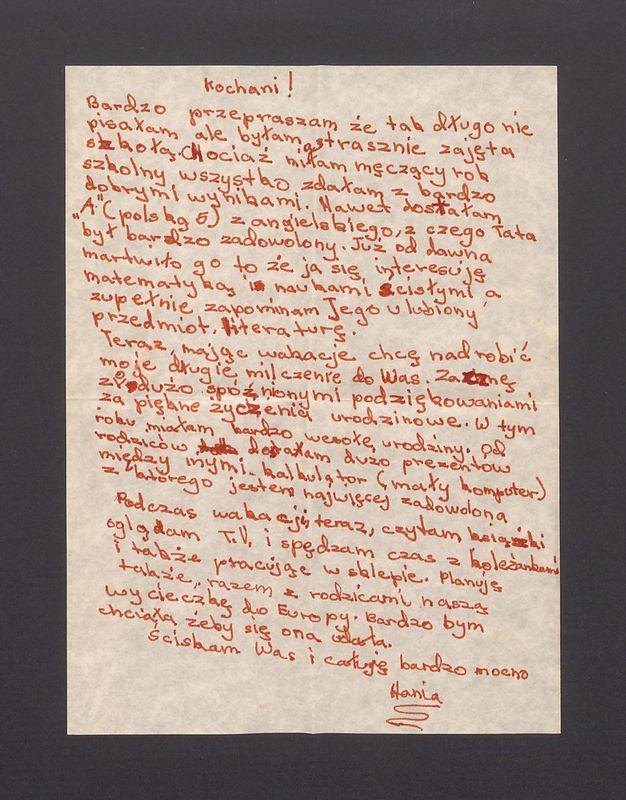 Kochani!
Bardzo przepraszam że tak długo nie
pisałam ale byłam strasznie zajęta
szkołą. Chociaż miłam męczący rok
szkolny wszystko zdałam z bardzo
dobrymi wynikami. Nawet dostałam
„A" (polską 5) z angielskiego, z czego Tata
był bardzo zadowolony. Już od dawna
martwiło go to że ja się interesuję
matematyką i naukami ścisłymi a
zupełnie zapominam Jego ulubiony
przedmiot, literaturę.
Teraz, mając wakacje chcę nadrobić
moje długie milczenie do Was. Zacznę
z dużo spóźnionymi podziękowaniami
za piękne życzenia urodzinowe. W tym
roku miałam bardzo wesołe urodziny. Od
rodziców dostałam dużo prezentów
między innymi kalkulator (mały komputer)
z którego jestem najwięcej zadowolona.
Podczas wakacji, teraz, czytam książki
oglądam T.V. i spędzam czas z koleżankami
i także pracując w sklepie. Planuję
także, razem z rodzicami naszą
wycieczkę do Europy. Bardzo bym
chciała żeby się ona udała.
Ściskam Was i całuję bardzo mocno
Hania